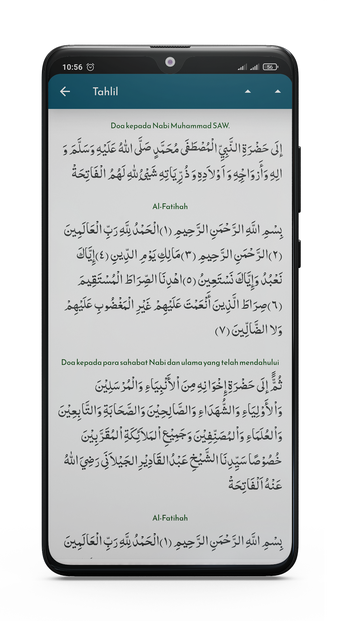 10:56
56
Tahlil
Doa kepada Nabi Muhammad SAW.
إِلَى حَضْرَةِ النَّبِيِّ الْمُصْطَفَى مُحَمَّدٍ صَلَّى اللهُ عَلَيْهِ وَسَلَّمَ وَ
اٰلِهِ وَأَزْوَاجِهِ وَأَوْلَادِهِ وَذُرِّيَّاتِهِ شَيْءٌ لِلهِ لَهُمُ الْفَاتِحَةْ
Al-Fatihah
بِسْمِ اللَّهِ الرَّحْمَنِ الرَّحِيمِ (١)الْحَمْدُ لِلَّهِ رَبِّ الْعَالَمِينَ
(٢)الرَّحْمَنِ الرَّحِيمِ (٣)مَالِكِ يَوْمِ الدِّينِ (٤)إِيَّاكَ
نَعْبُدُ وَإِيَّاكَ نَسْتَعِينُ (٥)اهْدِنَا الصِّرَاطَ الْمُسْتَقِيمَ
(٦)صِرَاطَ الَّذِينَ أَنْعَمْتَ عَلَيْهِمْ غَيْرِ الْمَغْضُوبِ عَلَيْهِمْ
وَلا الضَّالِّينَ (٧)
Doa kepada para sahabat Nabi dan ulama yang telah mendahului
ثُمَّ إِلَى حَضْرَةِ إِخْوَانِهِ مِنَ الْأَنْبِيَاءِ وَالْمُرْسَلِيْنَ
وَالْأَوْلِيَاءِ وَالشُّهَدَاءِ وَالصَّالِحِيْنَ وَالصَّحَابَةِ وَالتَّابِعِيْنَ
وَالْعُلَمَاءِ وَالْمُصَنِّفِيْنَ وَجَمِيْعِ الْمَلَائِكَةِ الْمُقَرَّبِيْنَ
خُصُوْصًا سَيِّدِنَا الشَّيْخِ عَبْدُ الْقَادِيْرِ الْجَيْلَانِى رَضِيَ اللهُ
عَنْهُ اَلْفَاتِحَةْ
Al-Fatihah
بِسْمِ اللَّهِ الرَّحْمَنِ الرَّحِيمِ (١)الْحَمْدُ لِلَّهِ رَبِّ الْعَالَمِينَ